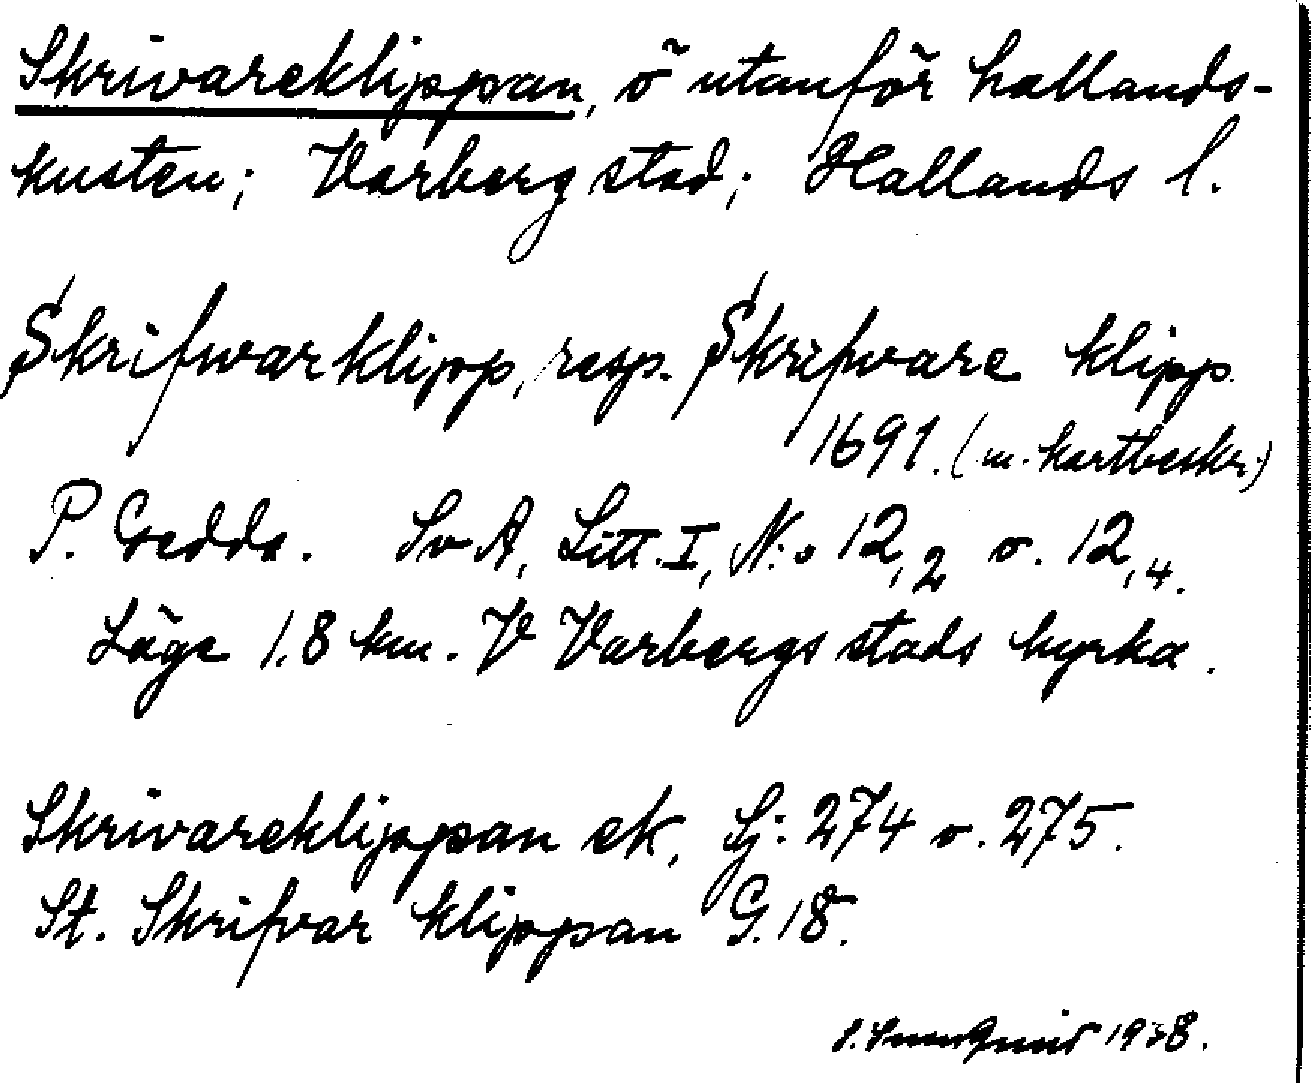 Skrivareklippan, ö utanför hallands-
kusten; Varberg stad; Hallands l.
Skrifwarklipp, resp. Skrifware klipp
1691. (m. kartbeskr.)
P. Gedda. SvA, Litt. I, N:o 12,2 o. 12,4.
Läge 1,8 km. V Varbergs stads kyrka.
Skrivareklippan ek, Sj: 274 o. 275.
St. Skrifvar klippan G. 18.
1938.